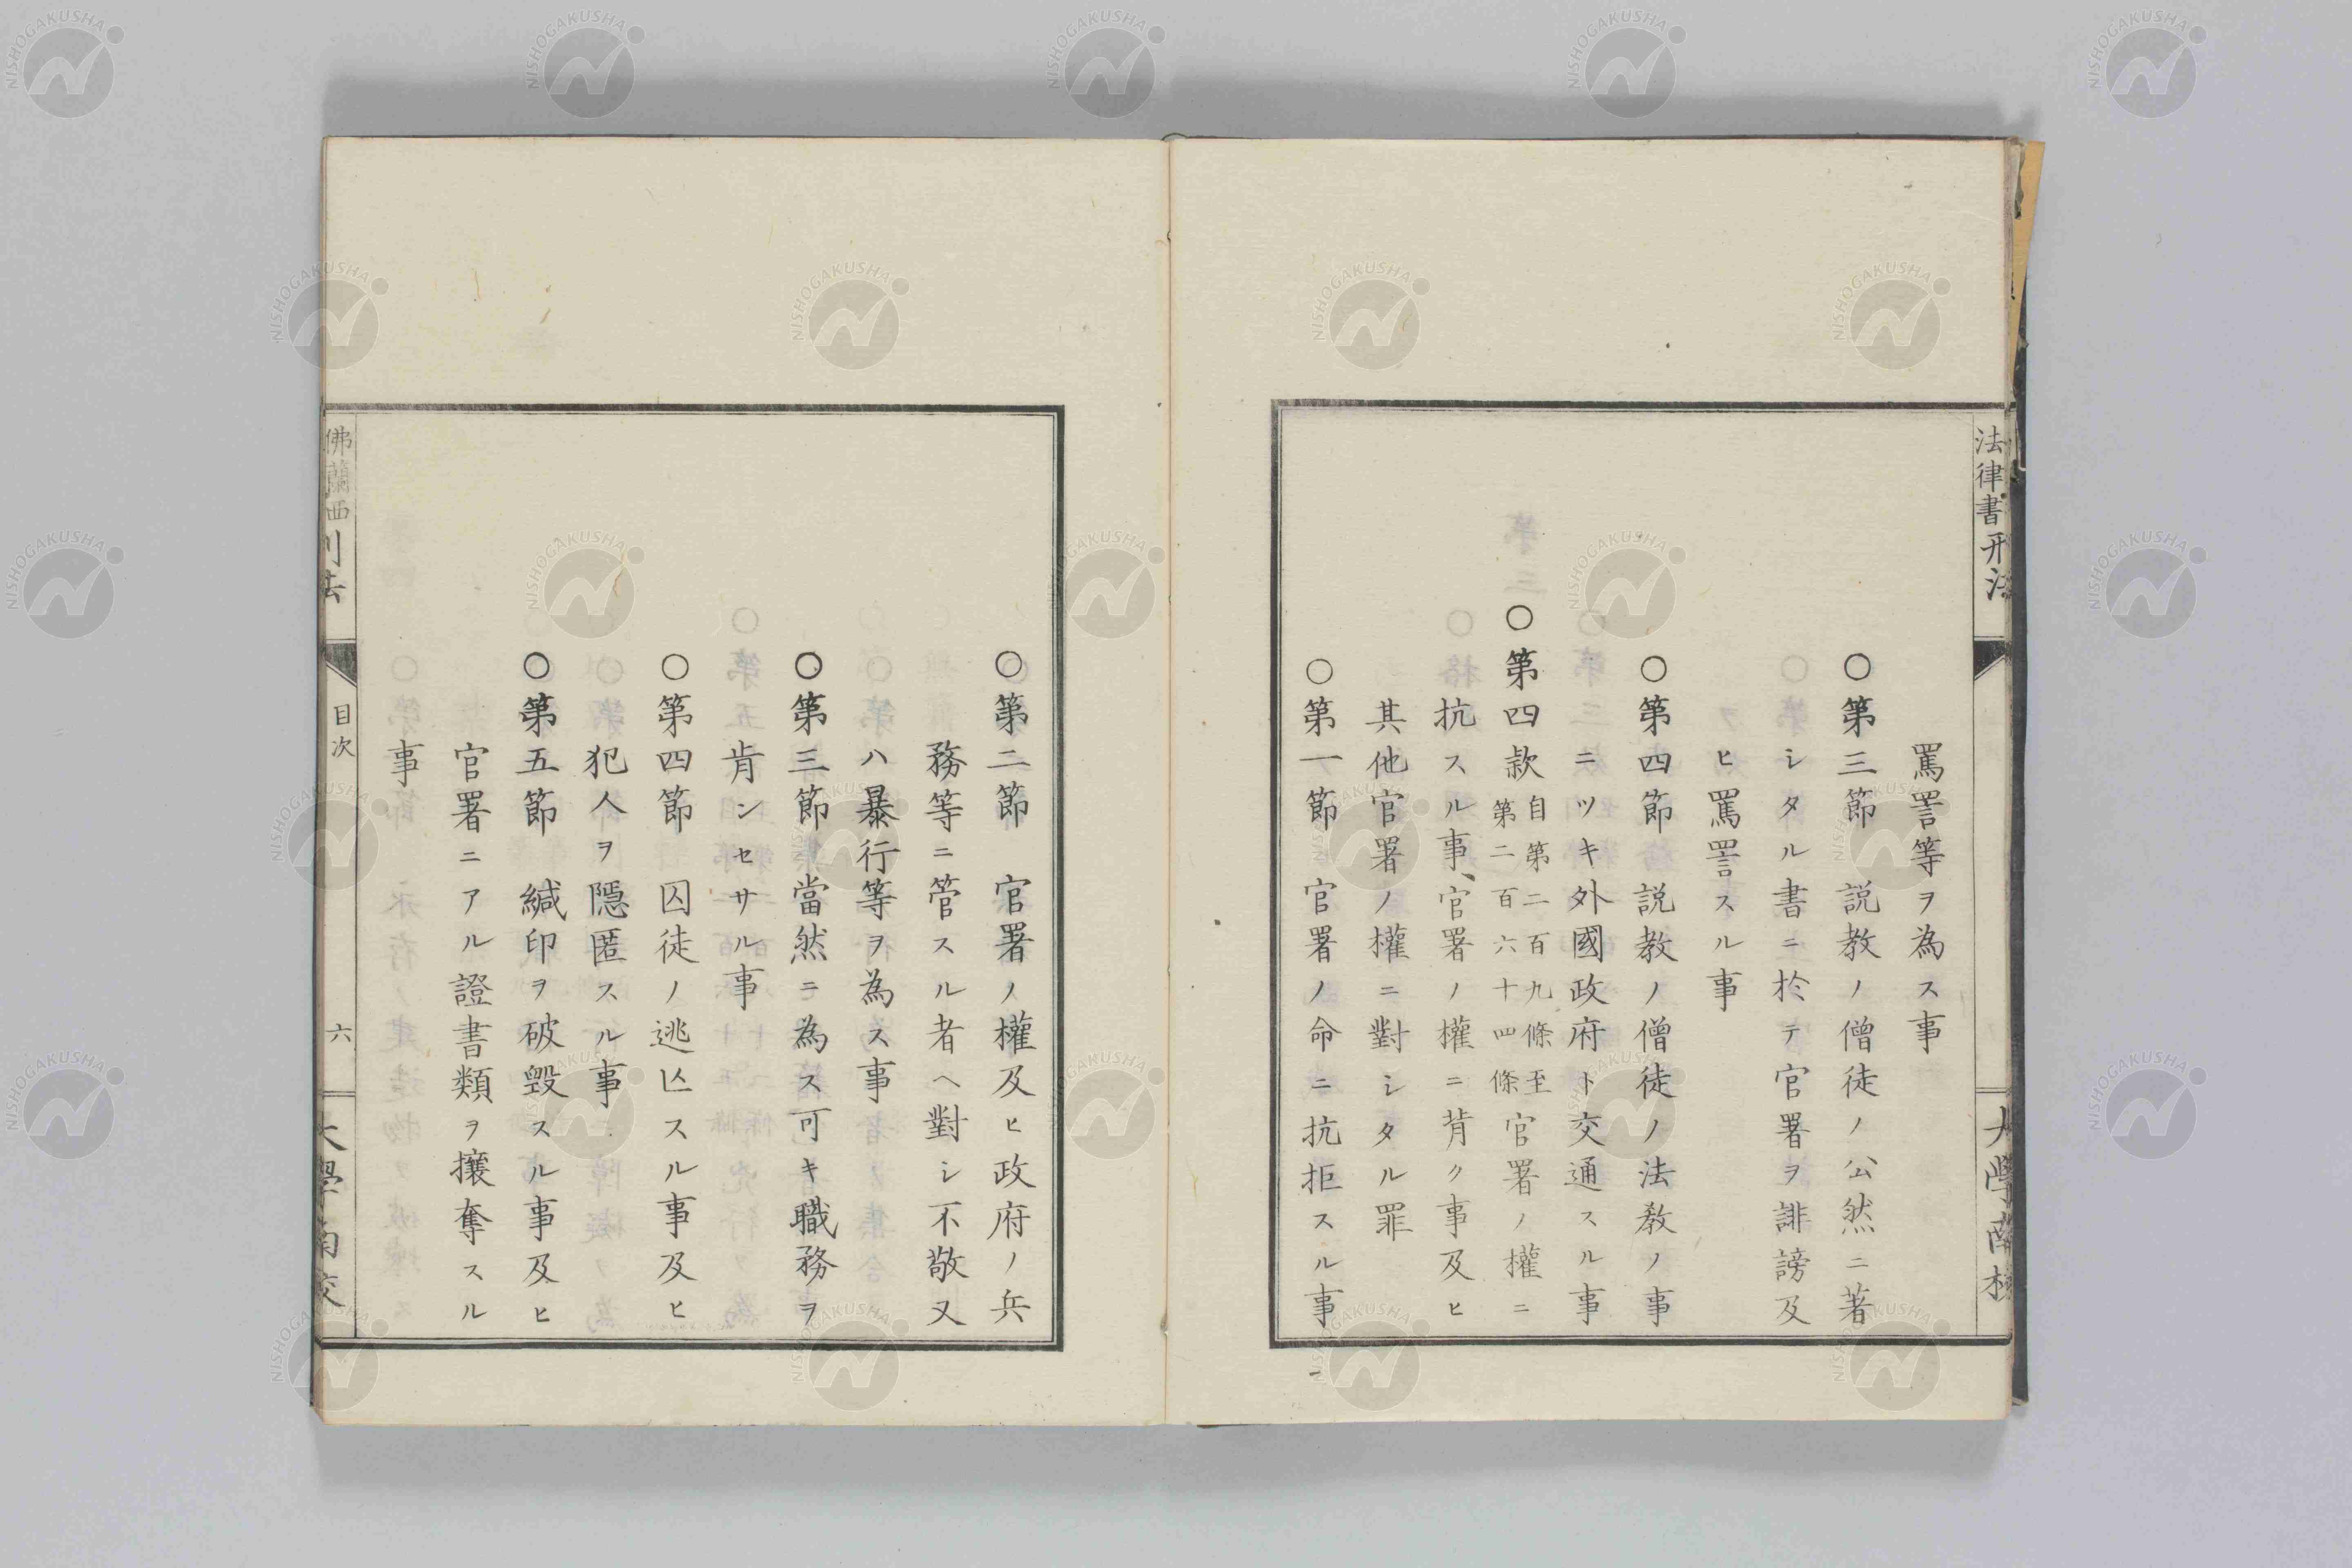 法律書刑法
大學南校
罵詈等ヲ為ス事
○第三節 説教ノ僧徒ノ公然ニ著
シタル書ニ於テ官署ヲ誹謗及
ヒ罵詈スル事
○第四節 説教ノ僧徒ノ法教ノ事
ニツキ外國政府ト交通スル事
○第四款 自第二百九條至
第二百六十四條 官署ノ權ニ
抗スル事、官署ノ權ニ背ク事及ヒ
其他官署ノ權ニ對シタル罪
○第一節 官署ノ命ニ抗拒スル事
○第二節 官署ノ權及ヒ政府ノ兵
務等ニ管スル者ヘ對シ不敬又
ハ暴行等ヲ為ス事
○第三節 當然ニ為ス可キ職務ヲ
肯ンセサル事
○第四節 囚徒ノ逃亡スル事及ヒ
犯人ヲ隱匿スル事
○第五節 緘印ヲ破毀スル事及ヒ
官署ニアル證書類ヲ攘奪スル
事
佛蘭西刑法
目次
六
大學南校
NISHOGAKUSHA